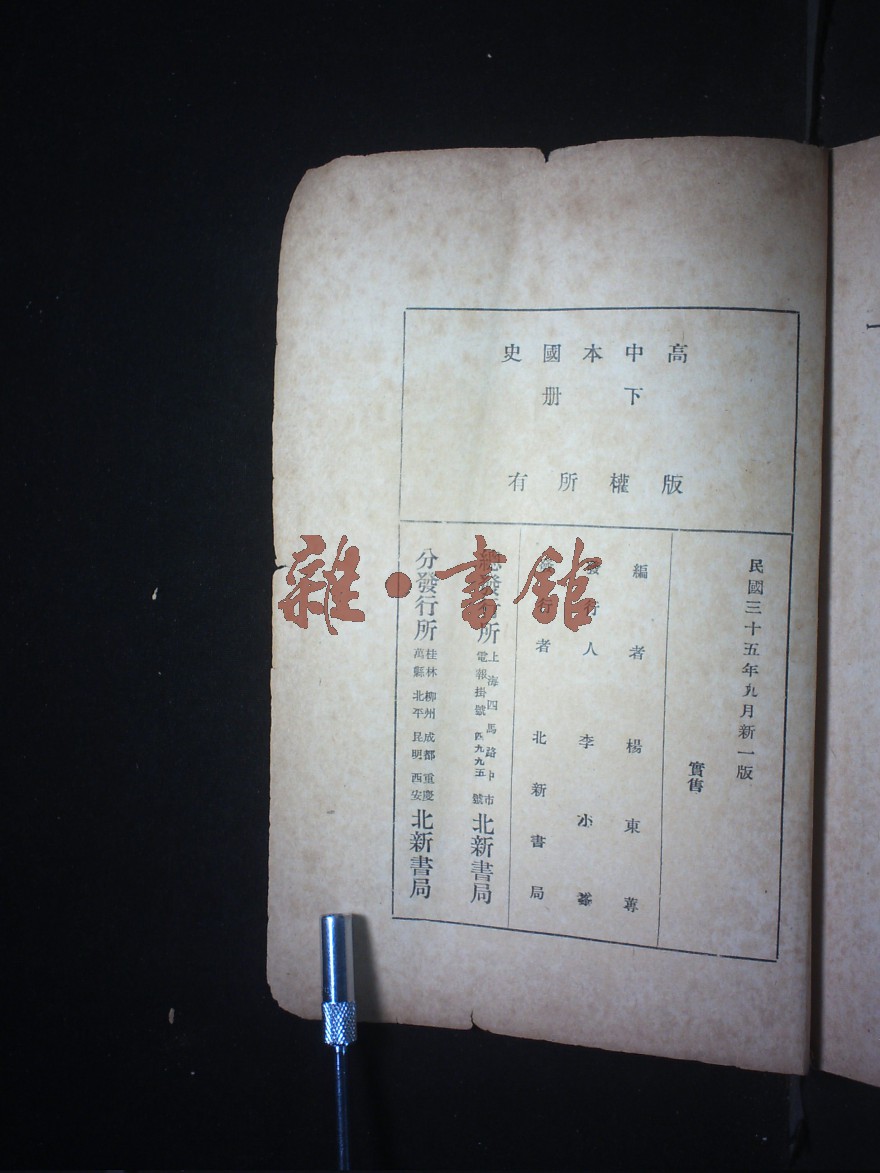 高中本國史
下册
版權所有
民國三十五年九月新一版
實售
編者 楊東蓴
發行人 李小峯
發行者 北新書局
總發行所 上海四馬路中市 電報掛號四九九五號 北新書局
分發行所 桂林 柳州 成都 重慶 萬縣 北平 昆明 西安 北新書局
雜·書館